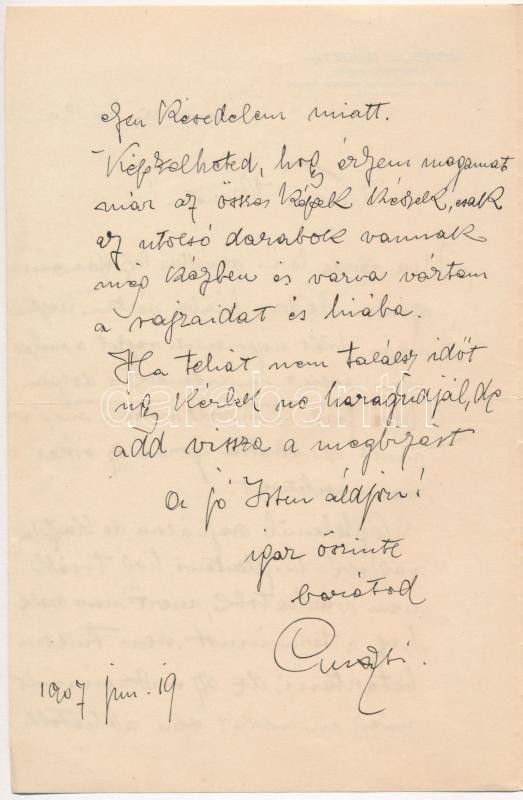 ezen késedelem miatt.
Képzelheted, hogy érzem magamat
már az összes képek készek, csak
az utolsó darabok vannak
még kézben és várva vártam
a rajzaidat és hiába.
Ha tehát nem találsz időt
úgy kérlek ne haragudjál, de
add vissza a megbizást
a jó Isten áldjon!
igaz őszinte
barátod
1907 jun. 19
darabanth